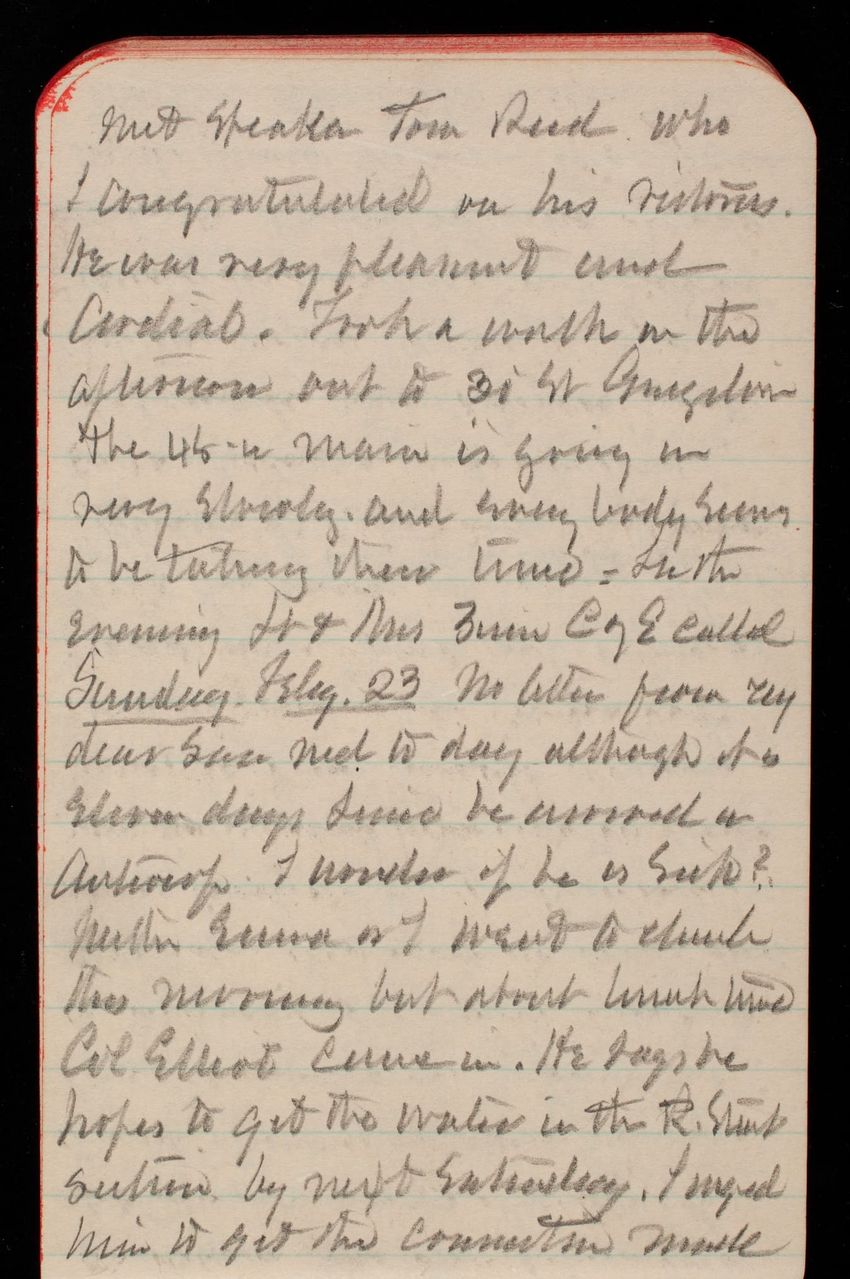 met Speaker Tom Reed who
I congratulated on his victories.
He was very pleasant and
Cordial. Took a walk in the
afternoon out to 30 St Georgetown
The 48-in main is going in
very slowly. and every body seems
to be taking their time = In the
evening Lt & Mrs Zinn C of E called
Sunday. Feby. 23 No letter from my
dear Son Ned to day although it is
Eleven days since he arrived in
Antwerp. I wonder if he is Sick?
Neither Emma or I went to church
this morning but about lunch time
Col Elliot came in. He says he
hopes to get the water in the R. Street
section by next Saturday. I urged
him to get the connection made